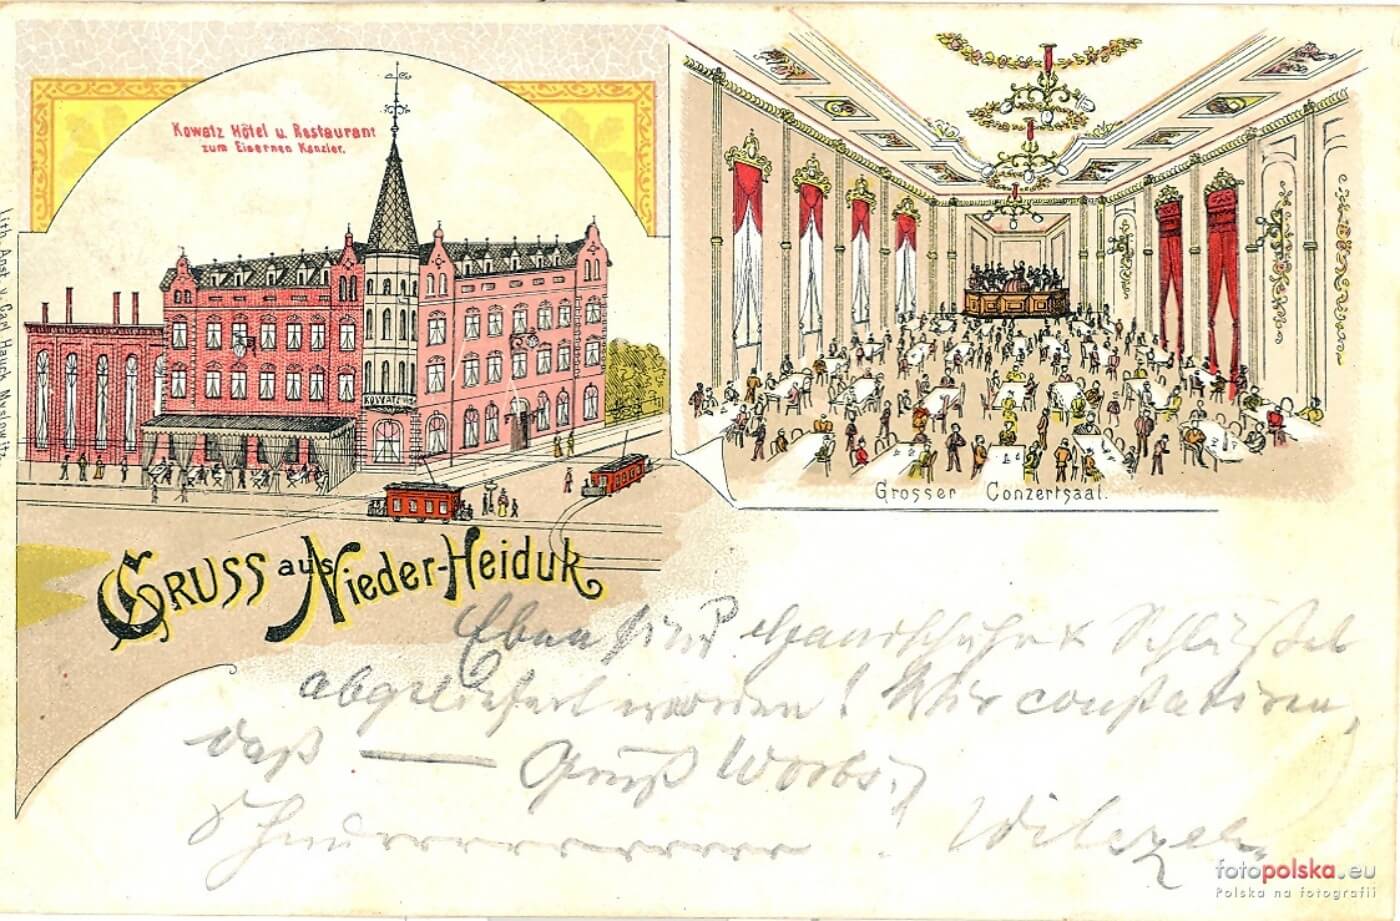 Kowatz Hôtel u. Restaurant
zum Eisernen Kanzler.
KOWATZ
Grosser Conzertsaal.
Lith. Anst. v. Carl Hauck Myslowitz
GRUSS aus Nieder-Heiduk
Eben sind Handschuhe & Schlüssel
abgeliefert worden! Wir constatiren,
daß — Gruß
fotopolska.eu
Polska na fotografii